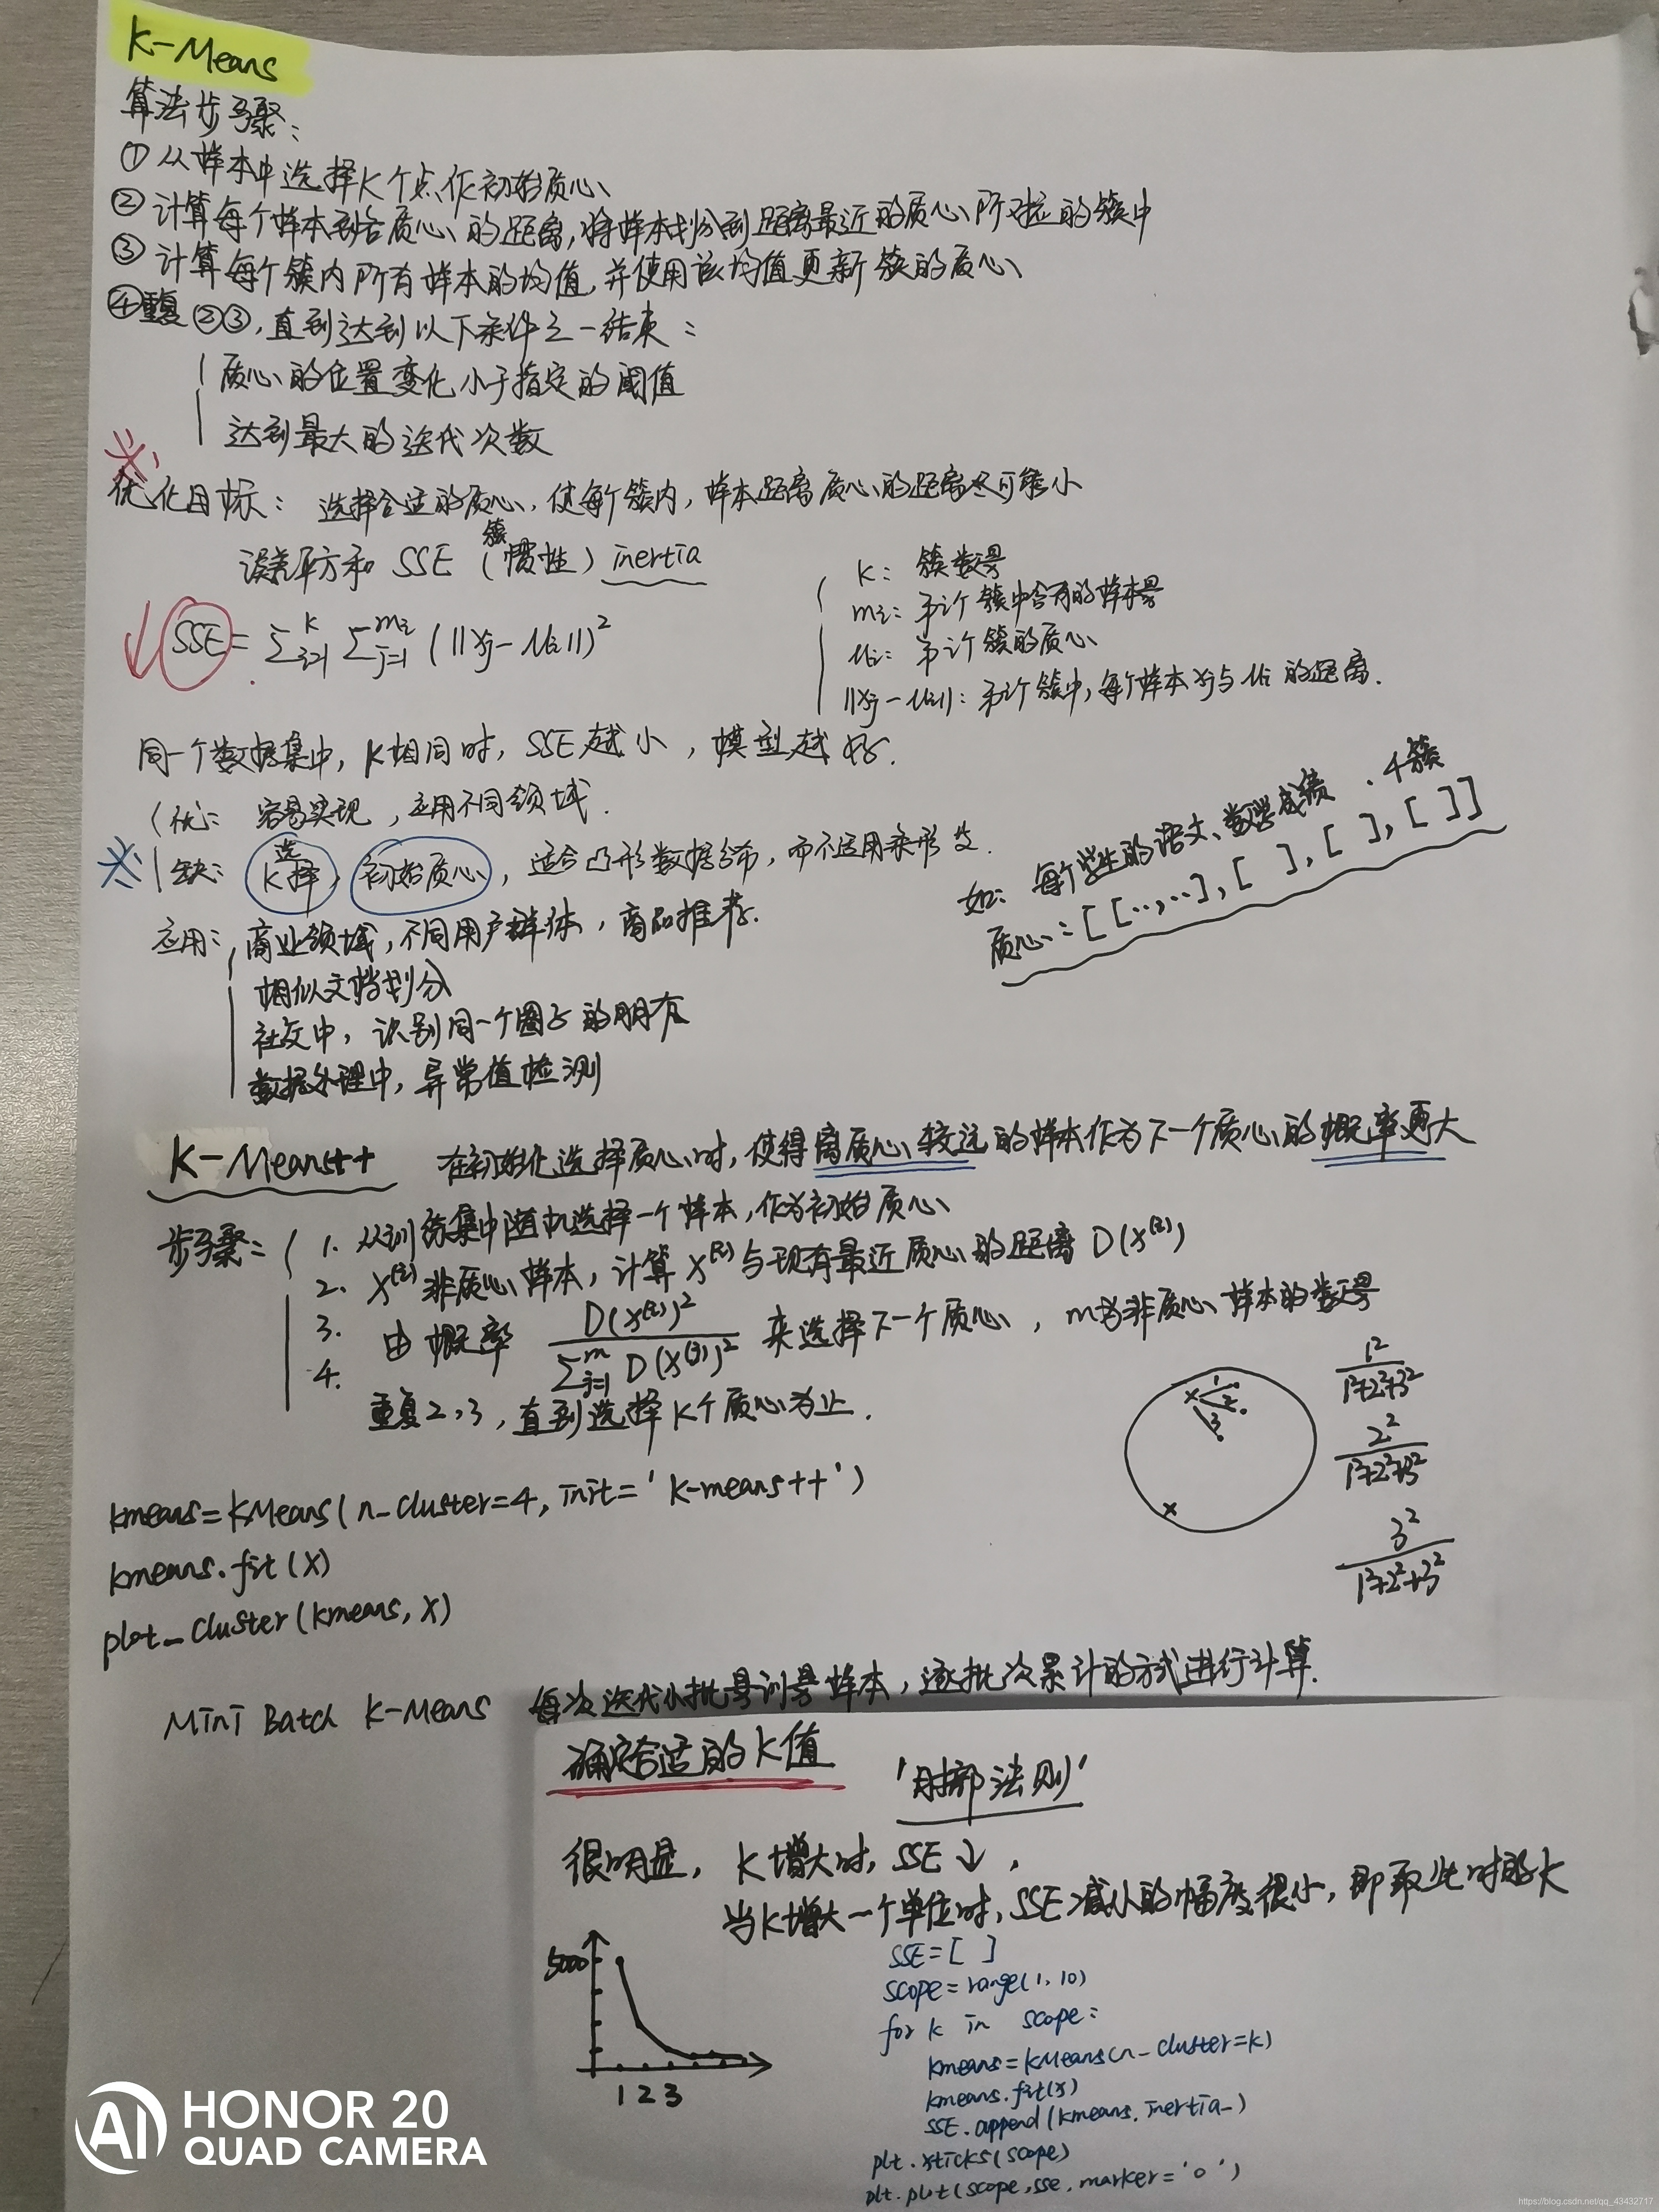 K-Means
算法步骤:
① 从样本中选择K个点作初始质心
② 计算每个样本到各质心的距离,将样本划分到距离最近的质心所对应的簇中
③ 计算每个簇内所有样本的均值,并使用该均值更新簇的质心
④重复②③,直到达到以下条件之一结束:
质心的位置变化小于指定的阈值
达到最大的迭代次数
优化目标: 选择合适的质心,使每个簇内,样本距离质心的距离尽可能小
误差平方和 SSE (簇惯性) inertia
SSE = ∑_{i=1}^{K} ∑_{j=1}^{m_i} (||x_j - μ_i||)²
K: 簇数量
m_i: 第i个簇中含有的样本量
μ_i: 第i个簇的质心
||x_j - μ_i||: 第i个簇中,每个样本x_j与μ_i的距离.
同一个数据集中,K相同时,SSE越小,模型越好.
优: 容易实现,应用不同领域.
缺: K选择, 初始质心, 适合凸形数据分布,而不适用条形等.
如: 每个学生的语文、数学成绩. 4簇
质心: [[..,..],[ ],[ ],[ ]]
应用: 商业领域,不同用户群体,商品推荐.
相似文档划分
社交中,识别同一个圈子的朋友
数据处理中,异常值检测
K-Means++ 在初始化选择质心时,使得离质心较远的样本作为下一个质心的概率更大
步骤: 1. 从训练集中随机选择一个样本,作为初始质心
2. x^(i)非质心样本,计算x^(i)与现有最近质心的距离 D(x^(i))
3. 由概率 D(x^(i))² / ∑_{j=1}^{m} D(x^(j))² 来选择下一个质心, m为非质心样本的数量
4. 重复2,3,直到选择K个质心为止.
x 1 2 3
x
1²/(1²+2²+3²)
2²/(1²+2²+3²)
3²/(1²+2²+3²)
kmeans=KMeans(n_cluster=4, init='k-means++')
kmeans.fit(X)
plot_cluster(kmeans, X)
Mini Batch K-Means 每次迭代小批量训量样本,逐批次累计的方式进行计算.
确定合适的K值 '肘部法则'
很明显, K增大时, SSE↓,
当K增大一个单位时,SSE减小的幅度很小,即取此时的K
5000
1 2 3
SSE=[ ]
scope=range(1,10)
for k in scope:
kmeans=KMeans(n_cluster=k)
kmeans.fit(x)
SSE.append(kmeans.inertia_)
plt.xticks(scope)
plt.plot(scope,sse,marker='o')
AI HONOR 20
QUAD CAMERA
https://blog.csdn.net/qq_43432717